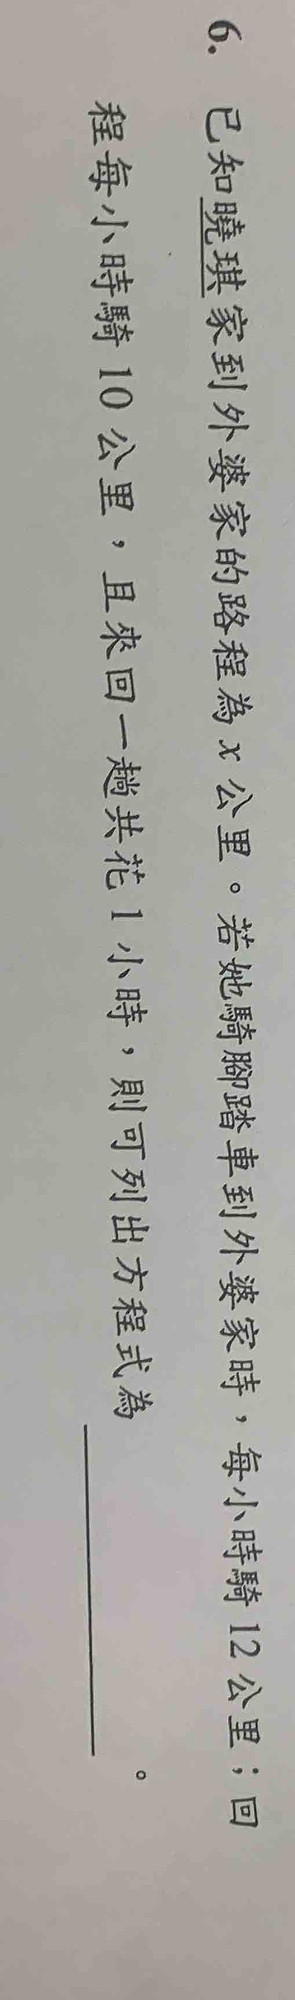 6. 已知曉琪家到外婆家的路程為 x 公里。若她騎腳踏車到外婆家時，每小時騎 12 公里；回
程每小時騎 10 公里，且來回一趟共花 1 小時，則可列出方程式為＿＿＿＿＿＿。